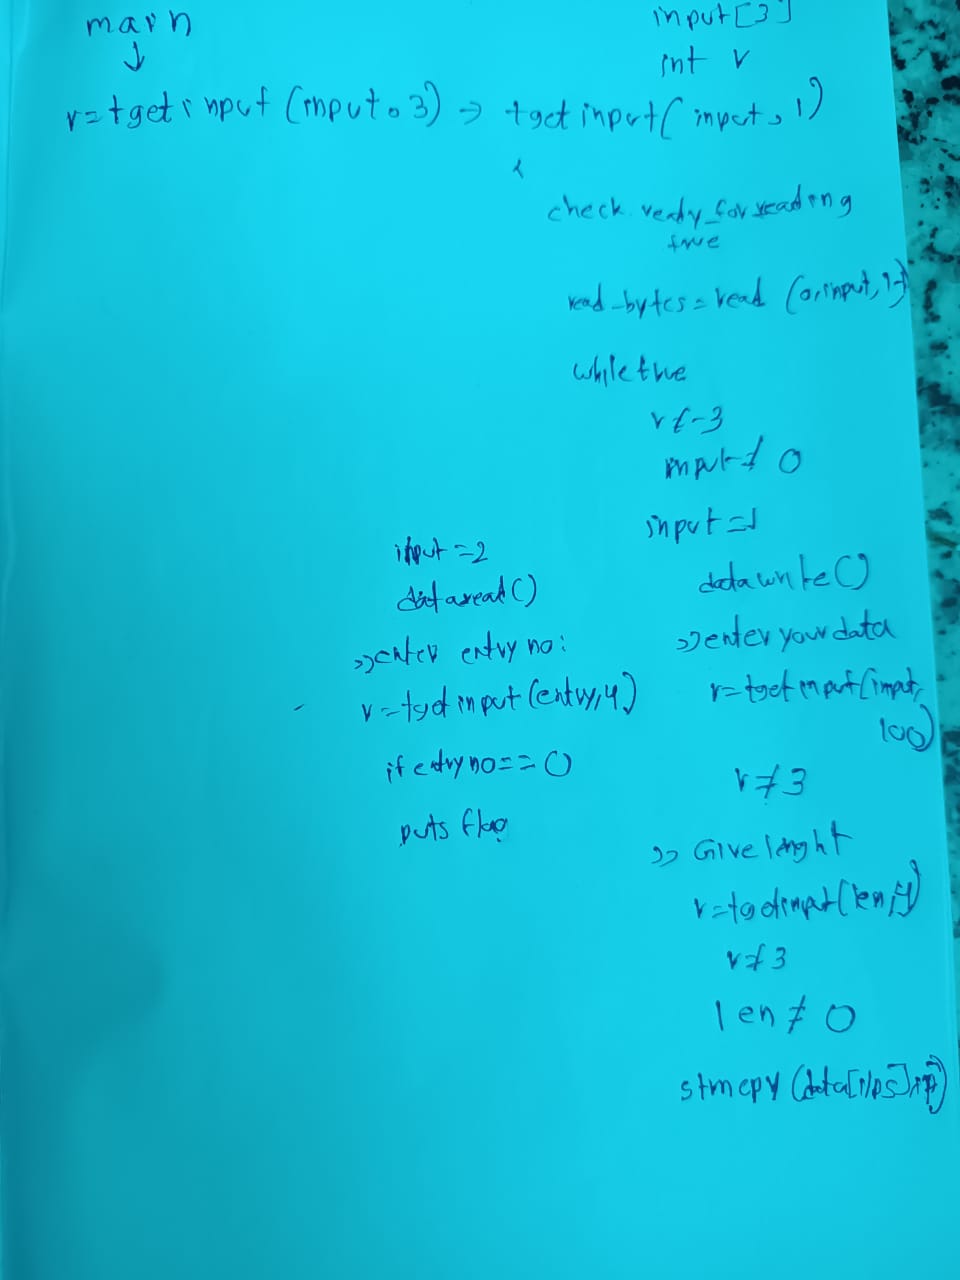 main
↓
input[3]
int r
r=tgetinput (input, 3) → tgetinput( input, 1)
{
check ready_for reading
true
read_bytes = read (0, input,
while true
r ≠ -3
input ≠ 0
input = 1
data write()
>>enter your data
r=tgetinput(input,
100)
r ≠ 3
>> Give lenght
r=tgetinput(len, 4)
r ≠ 3
len ≠ 0
strncpy (data[
input =2
dataread()
>>enter entry no:
r=tgetinput (entry, 4)
if entry no == 0
puts flag